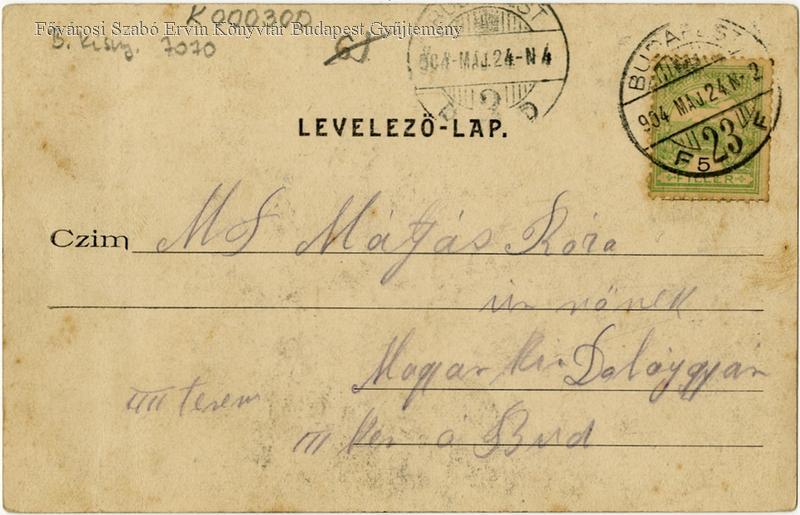 K 000300
Fővárosi Szabó Ervin Könyvtár Budapest Gyűjtemény
7070
BUDAPEST
904-MÁJ.24-N4
BUDAPEST
904 MÁJ 24 N 2
23
F 5 F
FILLÉR
LEVELEZŐ-LAP.
Czim Mátjás Róza
úr nőnek
Magyar kir Dohánygyár
IIII terem
III ker ó Bud